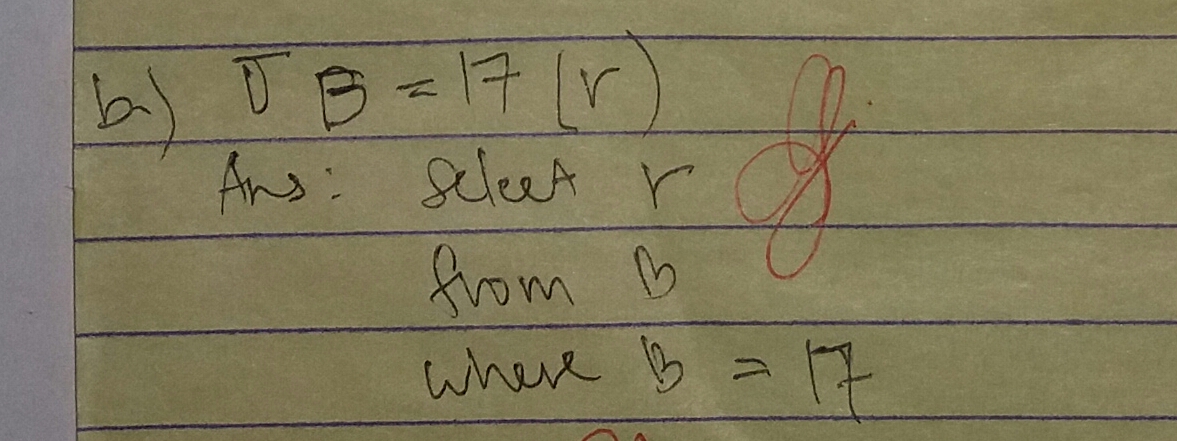 b) σ B = 17 (r)
Ans: Select r
from B
where B = 17